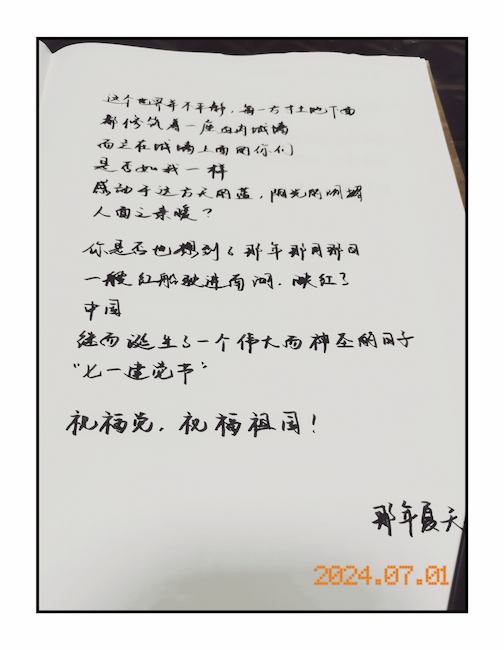 这个世界并不平静，每一方寸土地下面
都修筑着一座血肉城墙
而立在城墙上面的你们
是否如我一样
感动于这方天的蓝，阳光的明媚
人间之亲暖？
你是否也想到了那年那月那日
一艘红船驶进南湖，映红了
中国
继而诞生了一个伟大而神圣的日子
“七一建党节”
祝福党，祝福祖国！
那年夏天
2024.07.01